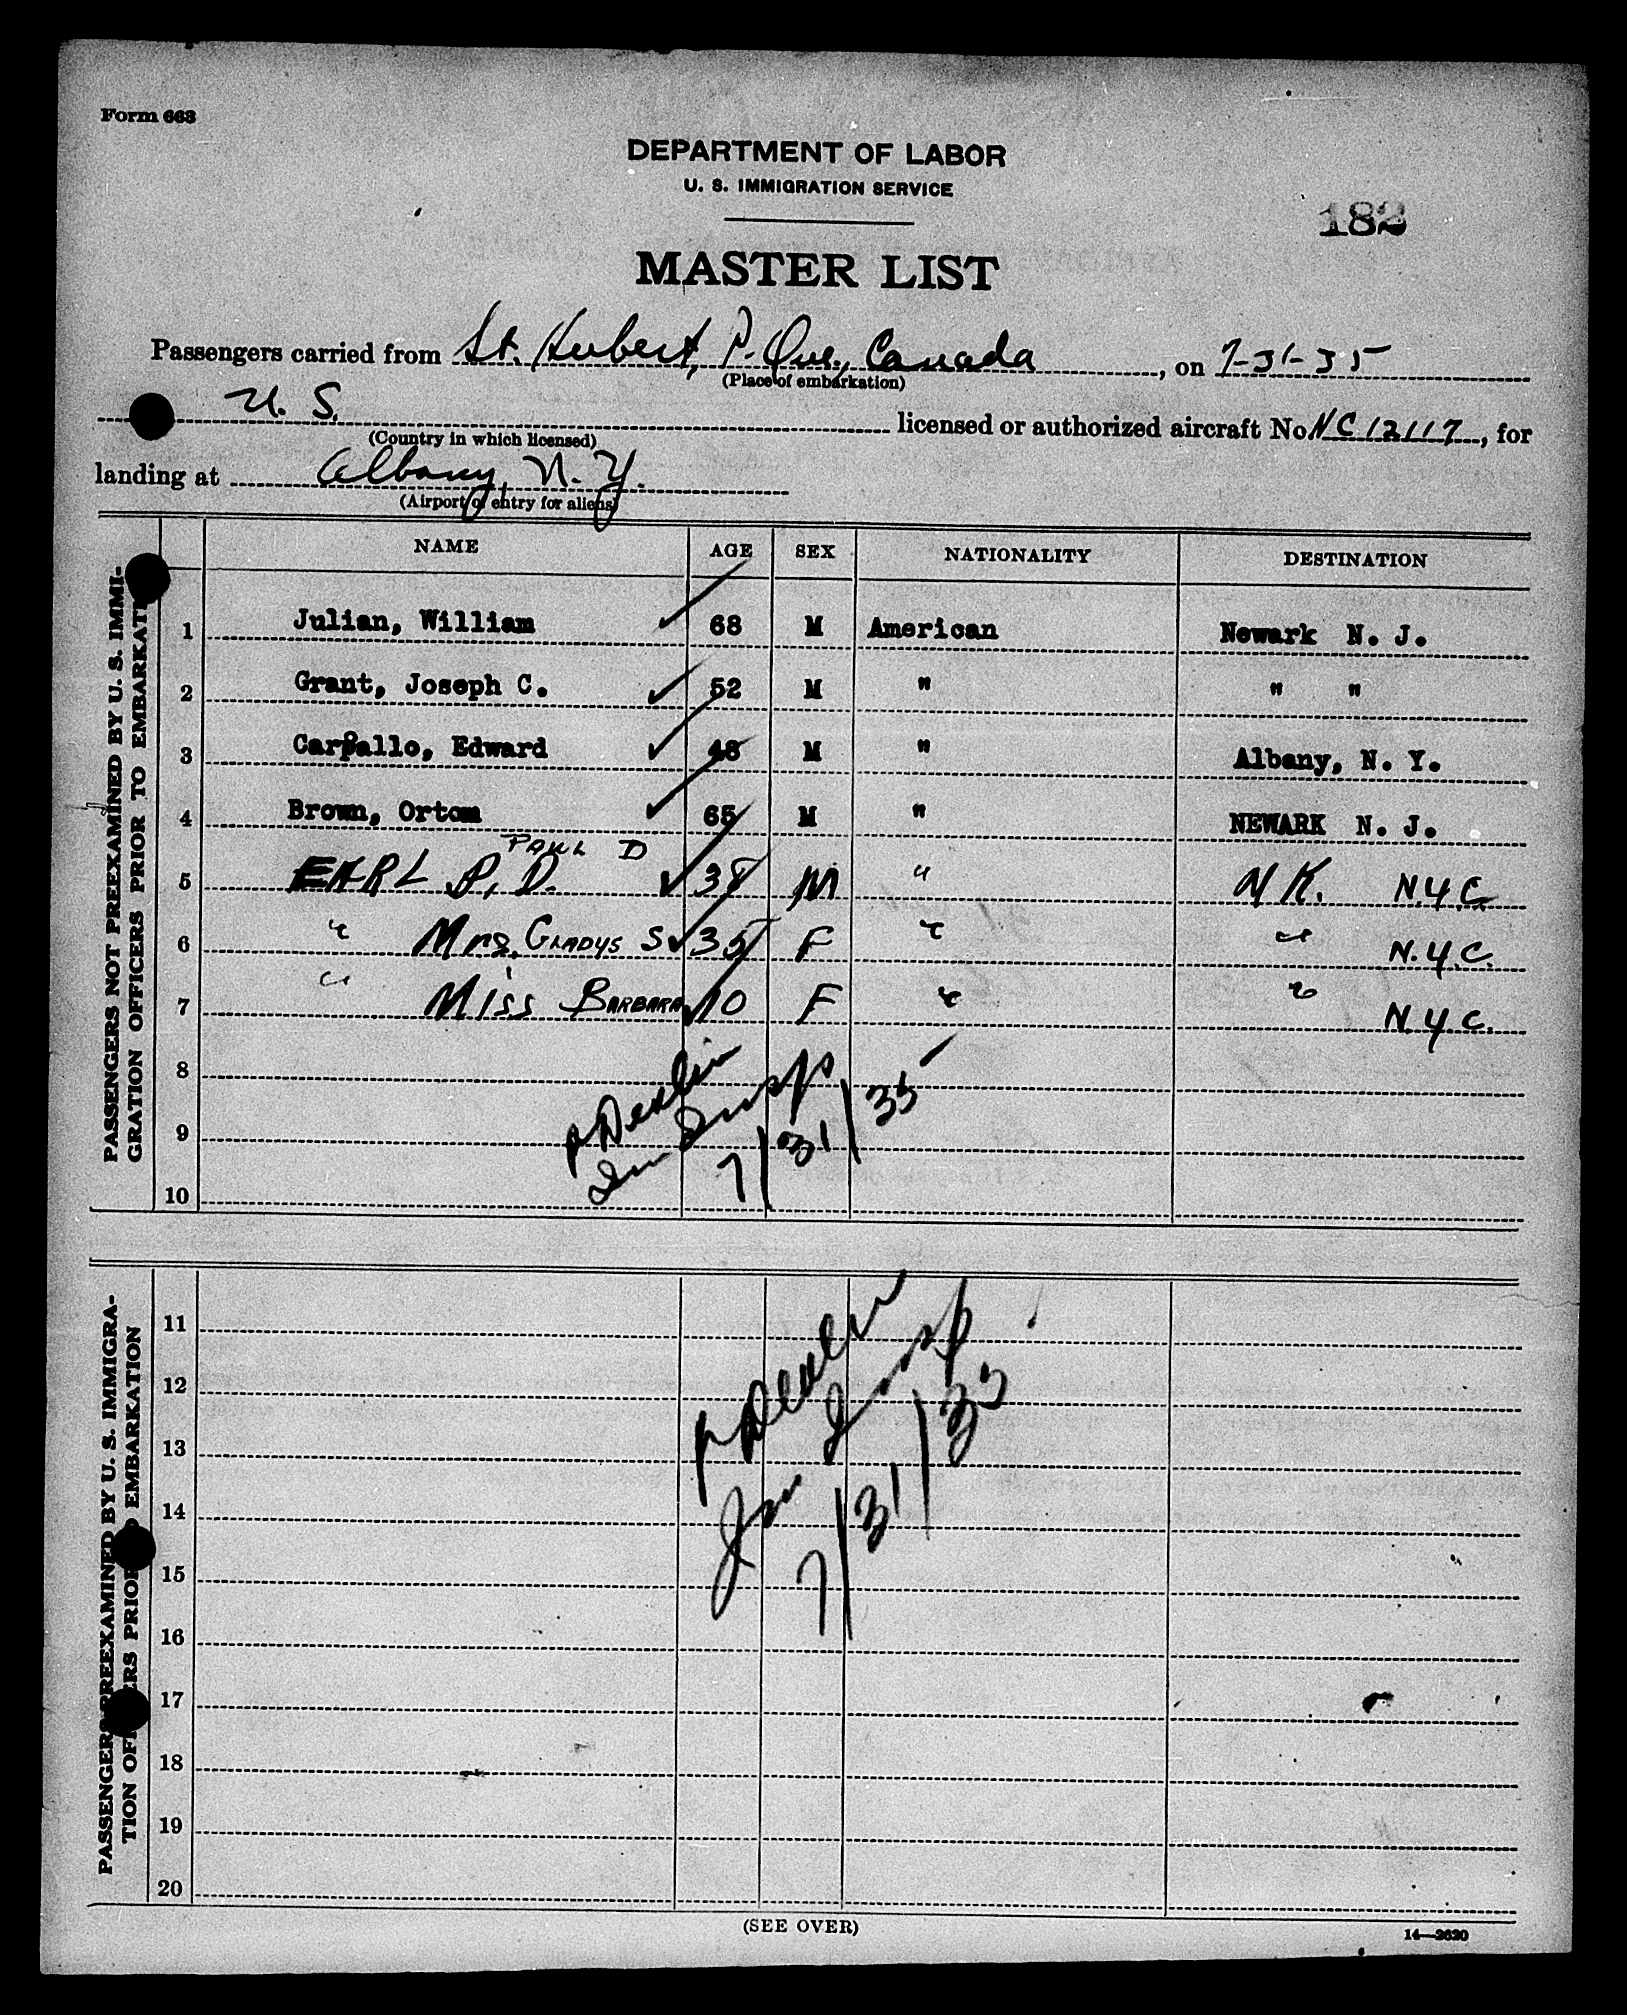 Form 663
DEPARTMENT OF LABOR
U. S. IMMIGRATION SERVICE
182
MASTER LIST
Passengers carried from St. Hubert, P. Que., Canada, on 7-31-35
(Place of embarkation)
U. S. licensed or authorized aircraft No. NC12117, for
(Country in which licensed)
landing at Albany, N. Y.
(Airport of entry for aliens)
NAME AGE SEX NATIONALITY DESTINATION
PASSENGERS NOT PREEXAMINED BY U. S. IMMI-
GRATION OFFICERS PRIOR TO EMBARKATI
1 Julian, William 68 M American Newark N. J.
2 Grant, Joseph C. 52 M " " "
3 Carballo, Edward 48 M " Albany, N. Y.
4 Brown, Ortom 65 M " NEWARK N. J.
PAUL D
5 EARL P. D. 38 M " N K. N.Y.C.
6 " Mrs. GLADYS S 35 F " " N.Y.C.
7 " MISS BARBARA 10 F " " N.Y.C.
8
9
10
P Devlin
Im Insp
7/31/35
PASSENGERS PREEXAMINED BY U. S. IMMIGRA-
TION OFFICERS PRIOR TO EMBARKATION
11
12
13
14
15
16
17
18
19
20
P Devlin
Im Insp
7/31/35
(SEE OVER)
14—2620